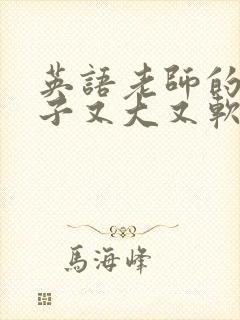 英語老師的
子又大又軟
馬海峰